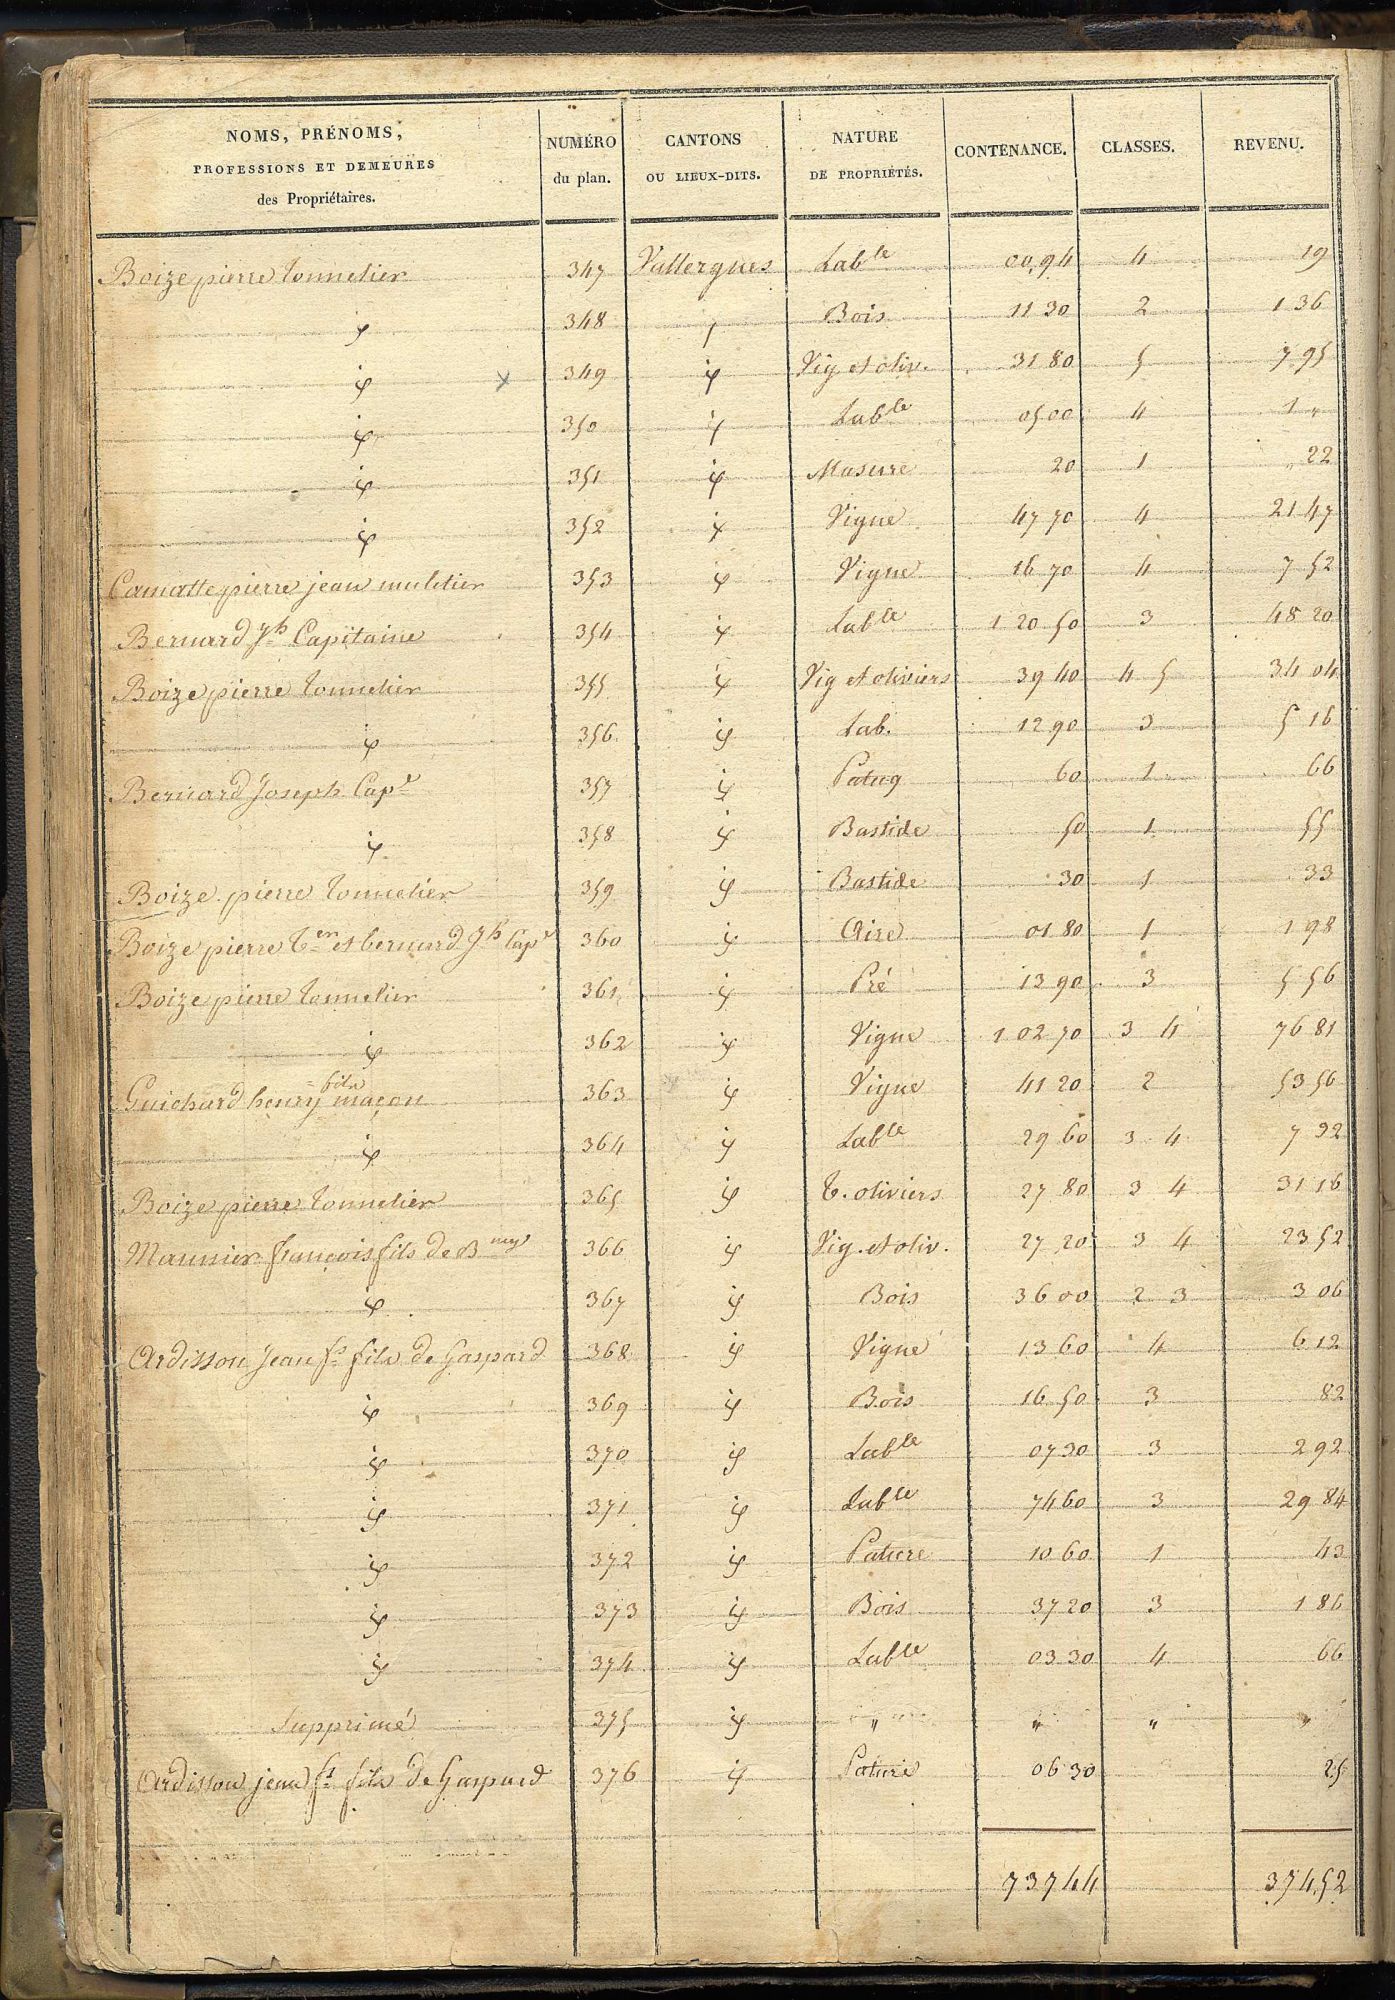 NOMS, PRÉNOMS, PROFESSIONS ET DEMEURES des Propriétaires. NUMÉRO du plan. CANTONS OU LIEUX-DITS. NATURE DE PROPRIÉTÉS. CONTENANCE. CLASSES. REVENU.
Boize pierre tonnelier 347 Vallergues Lab^le 00,94 4 19
id 348 Bois 11 30 2 1 36
id 349 id Vig et oliv. 31 80 5 7 95
id 350 id Lab^le 05 00 4 1 "
id 351 id Masure 20 1 " 22
id 352 id Vigne 47 70 4 21 47
Camatte pierre jean muletier 353 id Vigne 16 70 4 7 52
Bernard J^h Capitaine 354 id Lab^le 1 20 50 3 48 20
Boize pierre tonnelier 355 id Vig et oliviers 39 40 4 5 34 04
id 356 id Lab. 12 90 3 5 16
Bernard Joseph Cap^e 357 id Patuq 60 1 66
id 358 id Bastide 50 1 55
Boize pierre tonnelier 359 id Bastide 30 1 33
Boize pierre t^er et bernard J^h Cap^e 360 id Aire 01 80 1 1 98
Boize pierre tonnelier 361 id Pré 13 90 3 5 56
id 362 id Vigne 1 02 70 3 4 76 81
Guichard henry fils maçon 363 id Vigne 41 20 2 53 56
id 364 id Lab^le 29 60 3 4 7 92
Boize pierre tonnelier 365 id t. oliviers 27 80 3 4 31 16
Maunier françois fils de B^my 366 id Vig. et oliv. 27 20 3 4 23 52
id 367 id Bois 36 00 2 3 3 06
Ardisson Jean f^s fils de Gaspard 368 id Vigne 13 60 4 6 12
id 369 id Bois 16 50 3 82
id 370 id Lab^le 07 30 3 2 92
id 371 id Lab^le 74 60 3 29 84
id 372 id Pature 10 60 1 43
id 373 id Bois 37 20 3 1 86
id 374 id Lab^le 03 30 4 66
Supprimé 375 id " " " "
Ardisson jean f^s fils de Gaspard 376 id Pature 06 30 25
7 37 44 374,52